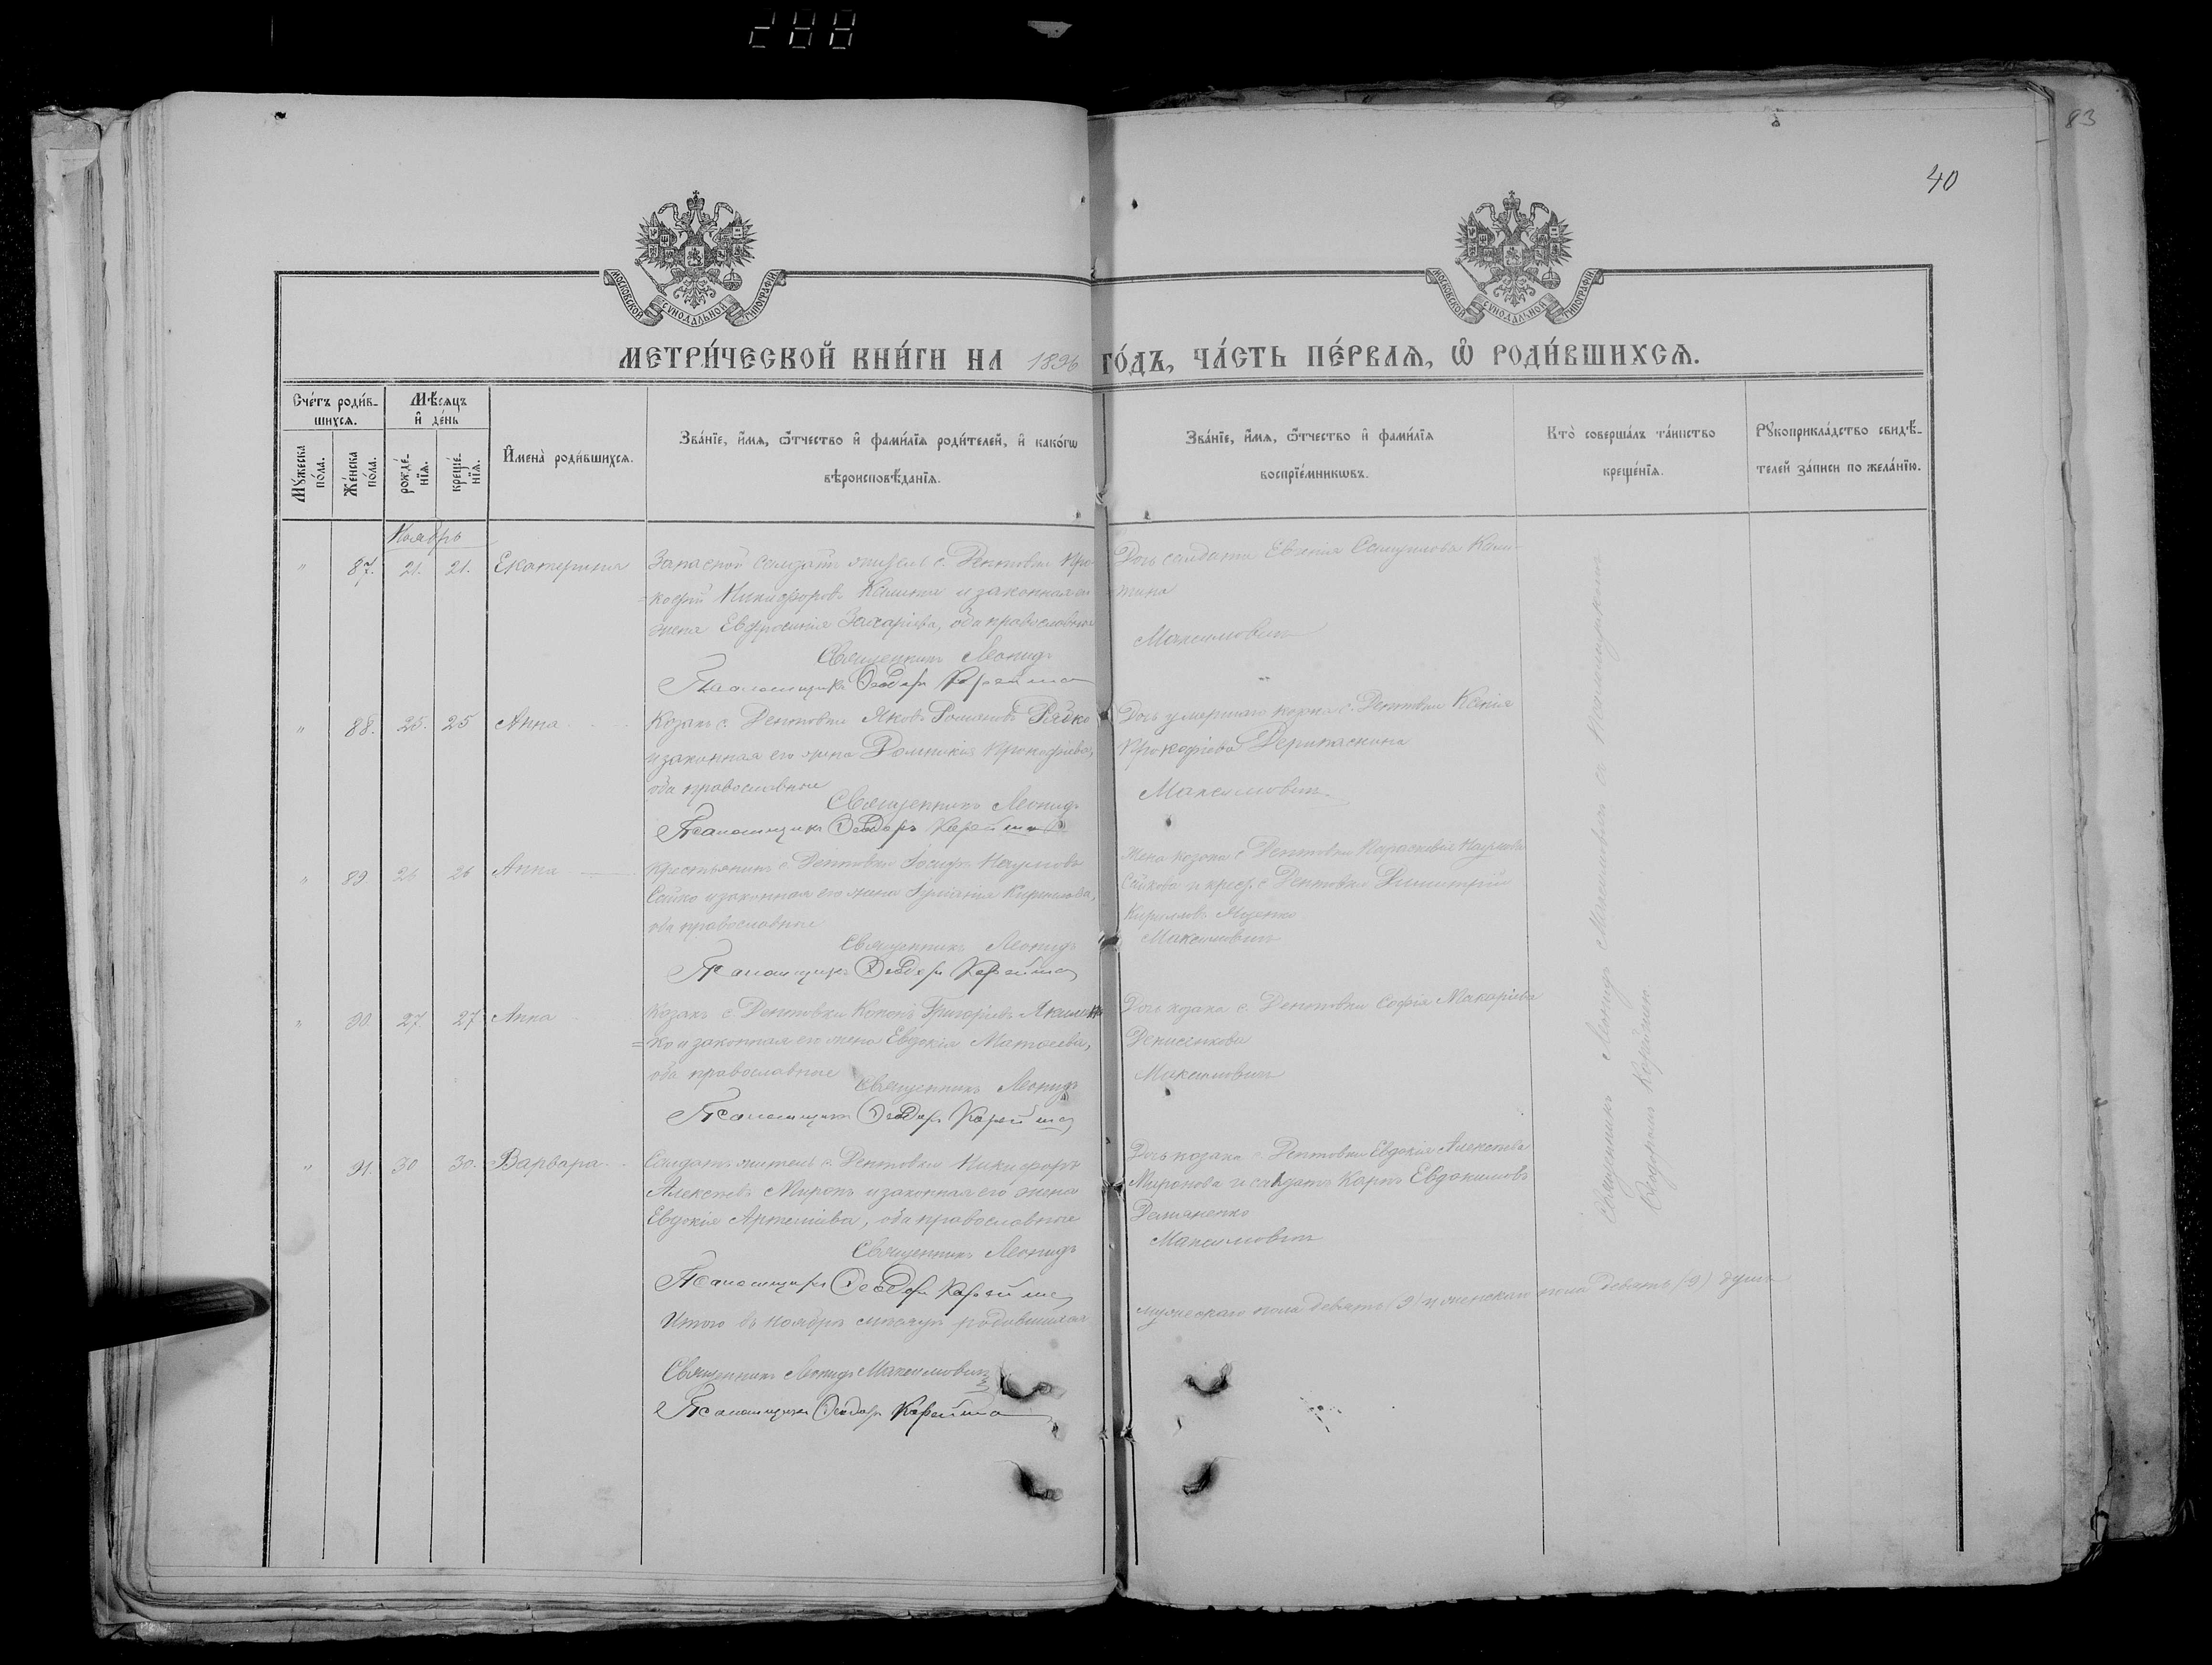 288
83
40
МОСКОВСКОЙ СѴНОДАЛЬНОЙ ТИПОГРАФІИ
МОСКОВСКОЙ СѴНОДАЛЬНОЙ ТИПОГРАФІИ
МЕТРИ́ЧЕСКОЙ КНИ́ГИ НА 1896 ГО́ДЪ, ЧА́СТЬ ПЕ́РВАЯ, Ѡ҆ РОДИ́ВШИХСЯ.
Сче́тъ роди́в-
шихся.
Мѣ́сяцъ
и҆ де́нь
Мꙋ́жеска
по́ла.
Же́нска
по́ла.
рожде́-
нїя.
креще́-
нїя.
И҆мена̀ роди́вшихся.
Зва́нїе, и҆́мя, ѻ҆́тчество и҆ фами́лїя роди́телей, и҆ како́гѡ
вѣроисповѣ́данїя.
Зва́нїе, и҆́мя, ѻ҆́тчество и҆ фами́лїя
воспрїе́мникѡвъ.
Кто̀ соверша́лъ та́инство
креще́нїя.
Рꙋкоприкла́дство свидѣ́-
телей за́писи по жела́нїю.
Ноябрь
" 87. 21. 21. Екатерина
Запасной солдатъ житель с. Дептовки Про-
=кофій Никифоровъ Калита и законная его
жена Евфросинія Захаріева, оба православные
Священникъ Леонидъ
Псаломщикъ Ѳеодоръ Корейша
Дочь солдата Евгенія Самуилова Кали-
=тина
Максимовичъ
" 88. 25. 25 Анна
Козакъ с. Дептовки Яковъ Романовъ Рядко
и законная его жена Домникія Прокофіева,
оба православные
Священникъ Леонидъ
Псаломщикъ Ѳеодоръ Корейша
Дочь умершаго козака с. Дептовки Ксенія
Прокофіева Дерипаскина
Максимовичъ
" 89 26 26 Анна
Крестьянинъ с. Дептовки Іосифъ Наумовъ
Сайко и законная его жена Іуліанія Кириллова,
оба православные
Священникъ Леонидъ
Псаломщикъ Ѳеодоръ Корейша
Жена козака с. Дептовки Параскевія Наумова
Сайкова и крест. с. Дептовки Димитрій
Кирилловъ Яценко
Максимовичъ
" 90. 27 27 Анна
Козакъ с. Дептовки Кононъ Григоріевъ Якимен-
=ко и законная его жена Евдокія Матѳеева,
оба православные
Священникъ Леонидъ
Псаломщикъ Ѳеодоръ Корейша
Дочь козака с. Дептовки Софія Макаріева
Денисенкова
Максимовичъ
" 91. 30 30. Варвара
Солдатъ житель с. Дептовки Никифоръ
Алексѣевъ Миронъ и законная его жена
Евдокія Артеміева, оба православные
Священникъ Леонидъ
Псаломщикъ Ѳеодоръ Корейша
Дочь козака с. Дептовки Евдокія Алексѣева
Миронова и солдатъ Карпъ Евдокимовъ
Демьяненко
Максимовичъ
Священникъ Леонидъ Максимовичъ съ Псаломщикомъ
Ѳеодоромъ Корейшею
Итого въ ноябрѣ мѣсяцѣ родившихся мужескаго пола девять (9) и женскаго пола девять (9) душъ
Священникъ Леонидъ Максимовичъ
Псаломщикъ Ѳеодоръ Корейша